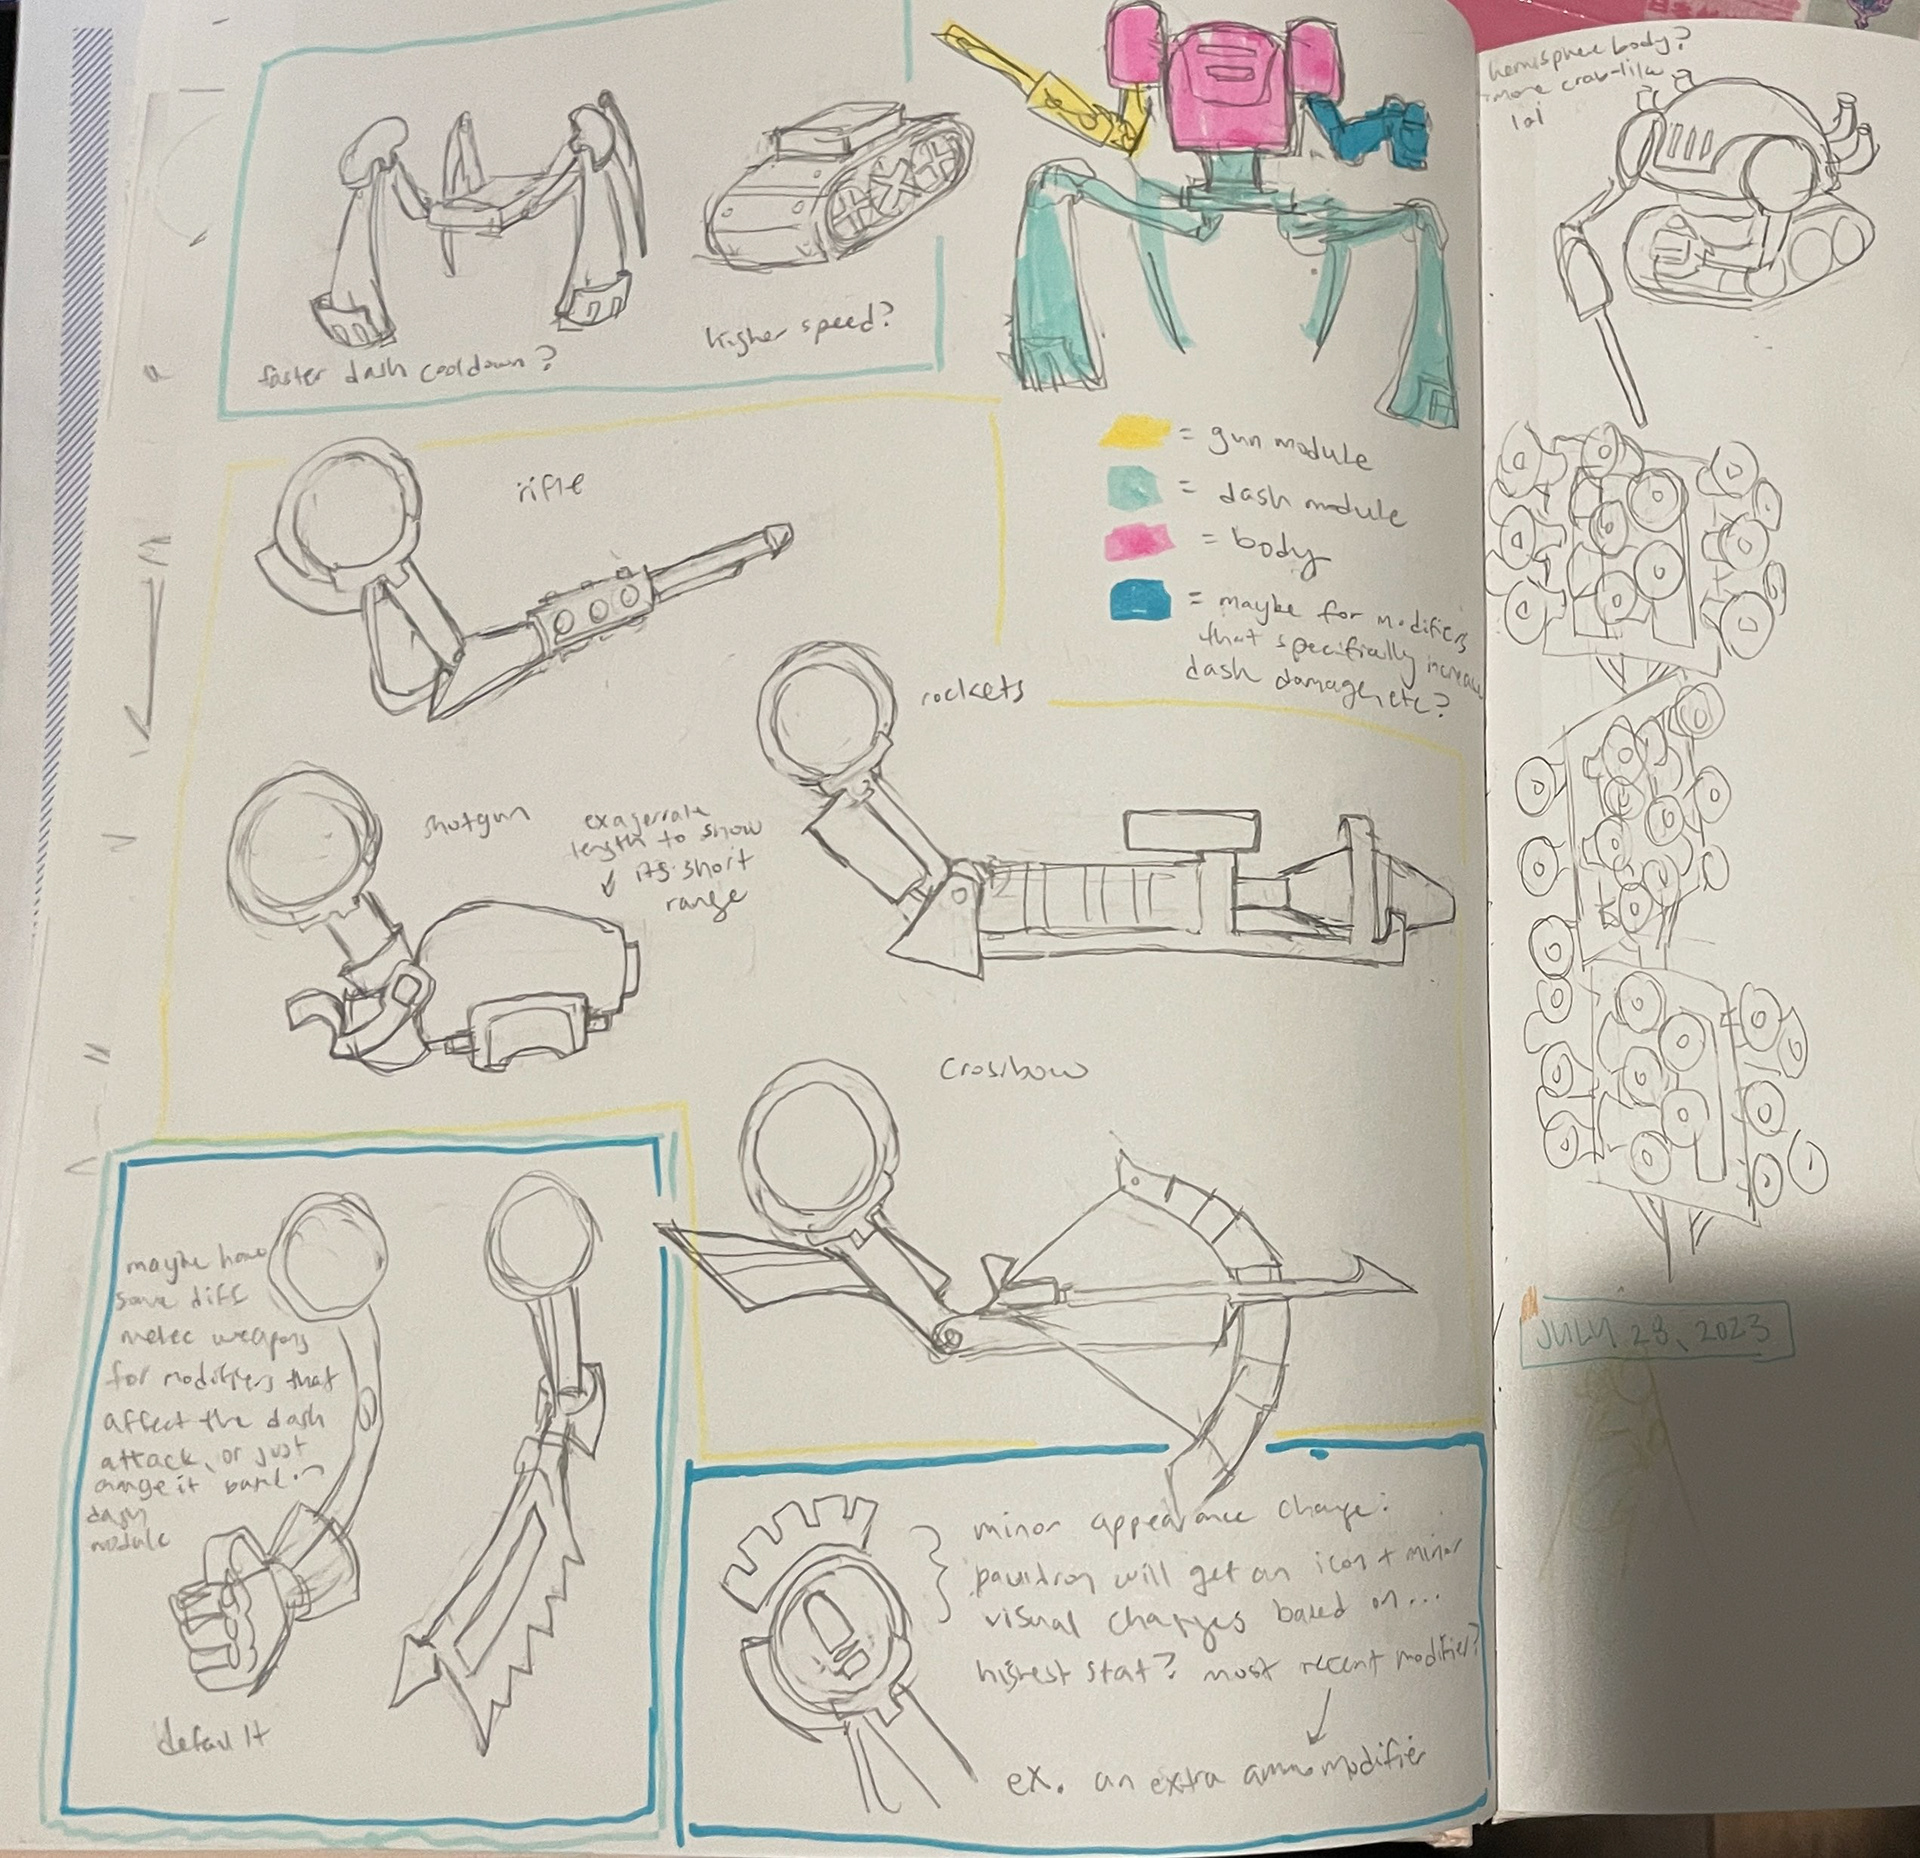 faster dash cooldown?
higher speed?
= gun module
= dash module
= body
= maybe for modifiers
that specifically increase
dash damage, etc?
rifle
rockets
shotgun
exagerrate
length to show
its short
range
crossbow
maybe have
some diff
melee weapons
for modifiers that
affect the dash
attack, or just
change it
dash
module
default
minor appearance change:
pauldron will get an icon + minor
visual changes based on...
highest stat? most recent modifier?
ex. an extra ammo modifier
hemisphere body?
more crab-like
lol
JULY 28, 2023